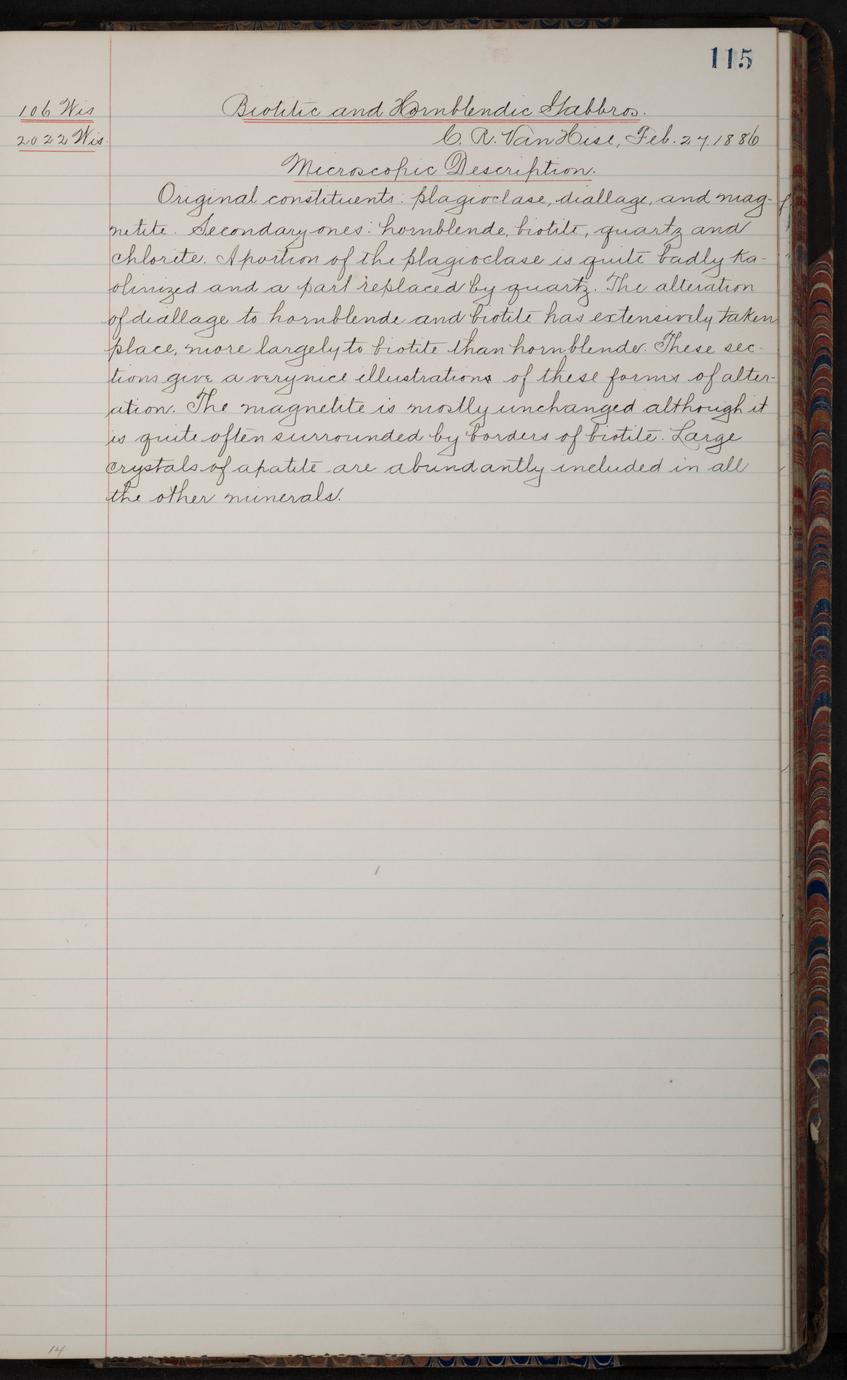 115
106 Wis
Biotitic and Hornblendic Gabbros.
2022 Wis.
C. R. Van Hise, Feb. 27, 1886
Microscopic Description.
Original constituents: plagioclase, diallage, and mag-
netite. Secondary ones: hornblende, biotite, quartz and
chlorite. A portion of the plagioclase is quite badly ka-
olinized and a part replaced by quartz. The alteration
of diallage to hornblende and biotite has extensively taken
place, more largely to biotite than hornblende. These sec-
tions give a very nice illustrations of these forms of alter-
ation. The magnetite is mostly unchanged although it
is quite often surrounded by borders of biotite. Large
crystals of apatite are abundantly included in all
the other minerals.
14